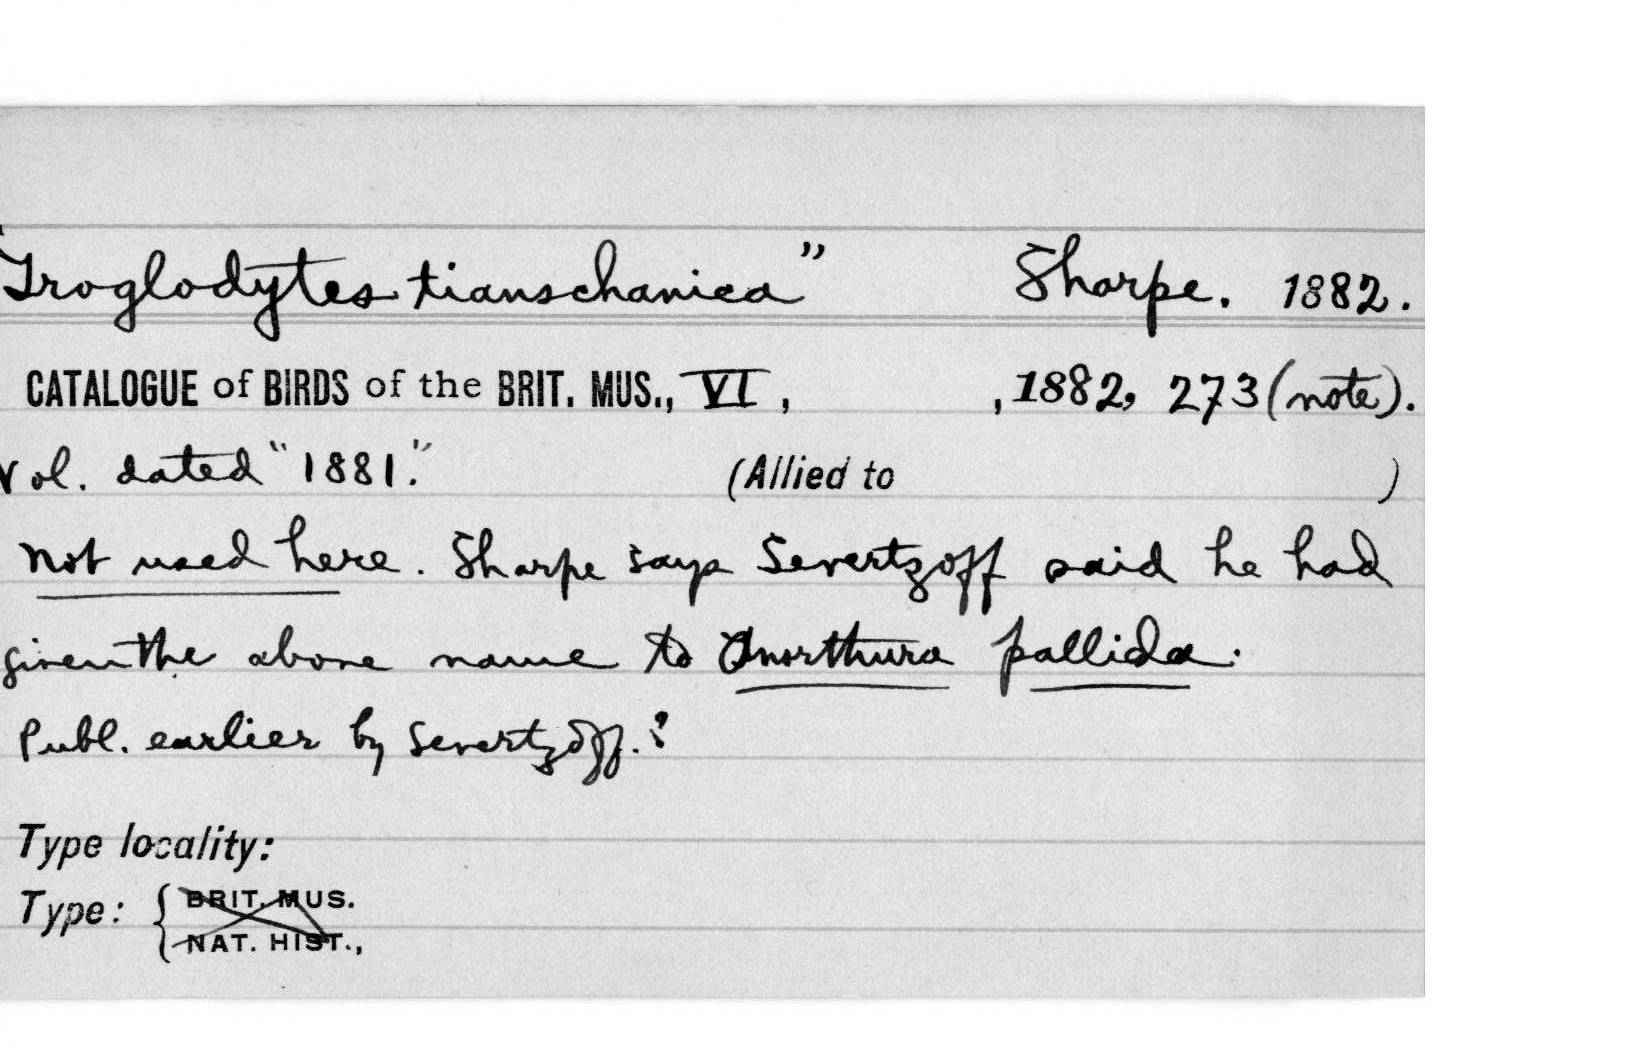 "Troglodytes tianschanica" Sharpe. 1882.
CATALOGUE of BIRDS of the BRIT. MUS., VI, , 1882, 273 (note).
Vol. dated "1881." (Allied to )
Not used here. Sharpe says Severtzoff said he had
given the above name to Anorthura pallida.
Publ. earlier by Severtzoff.?
Type locality:
Type: { BRIT. MUS.
NAT. HIST.,